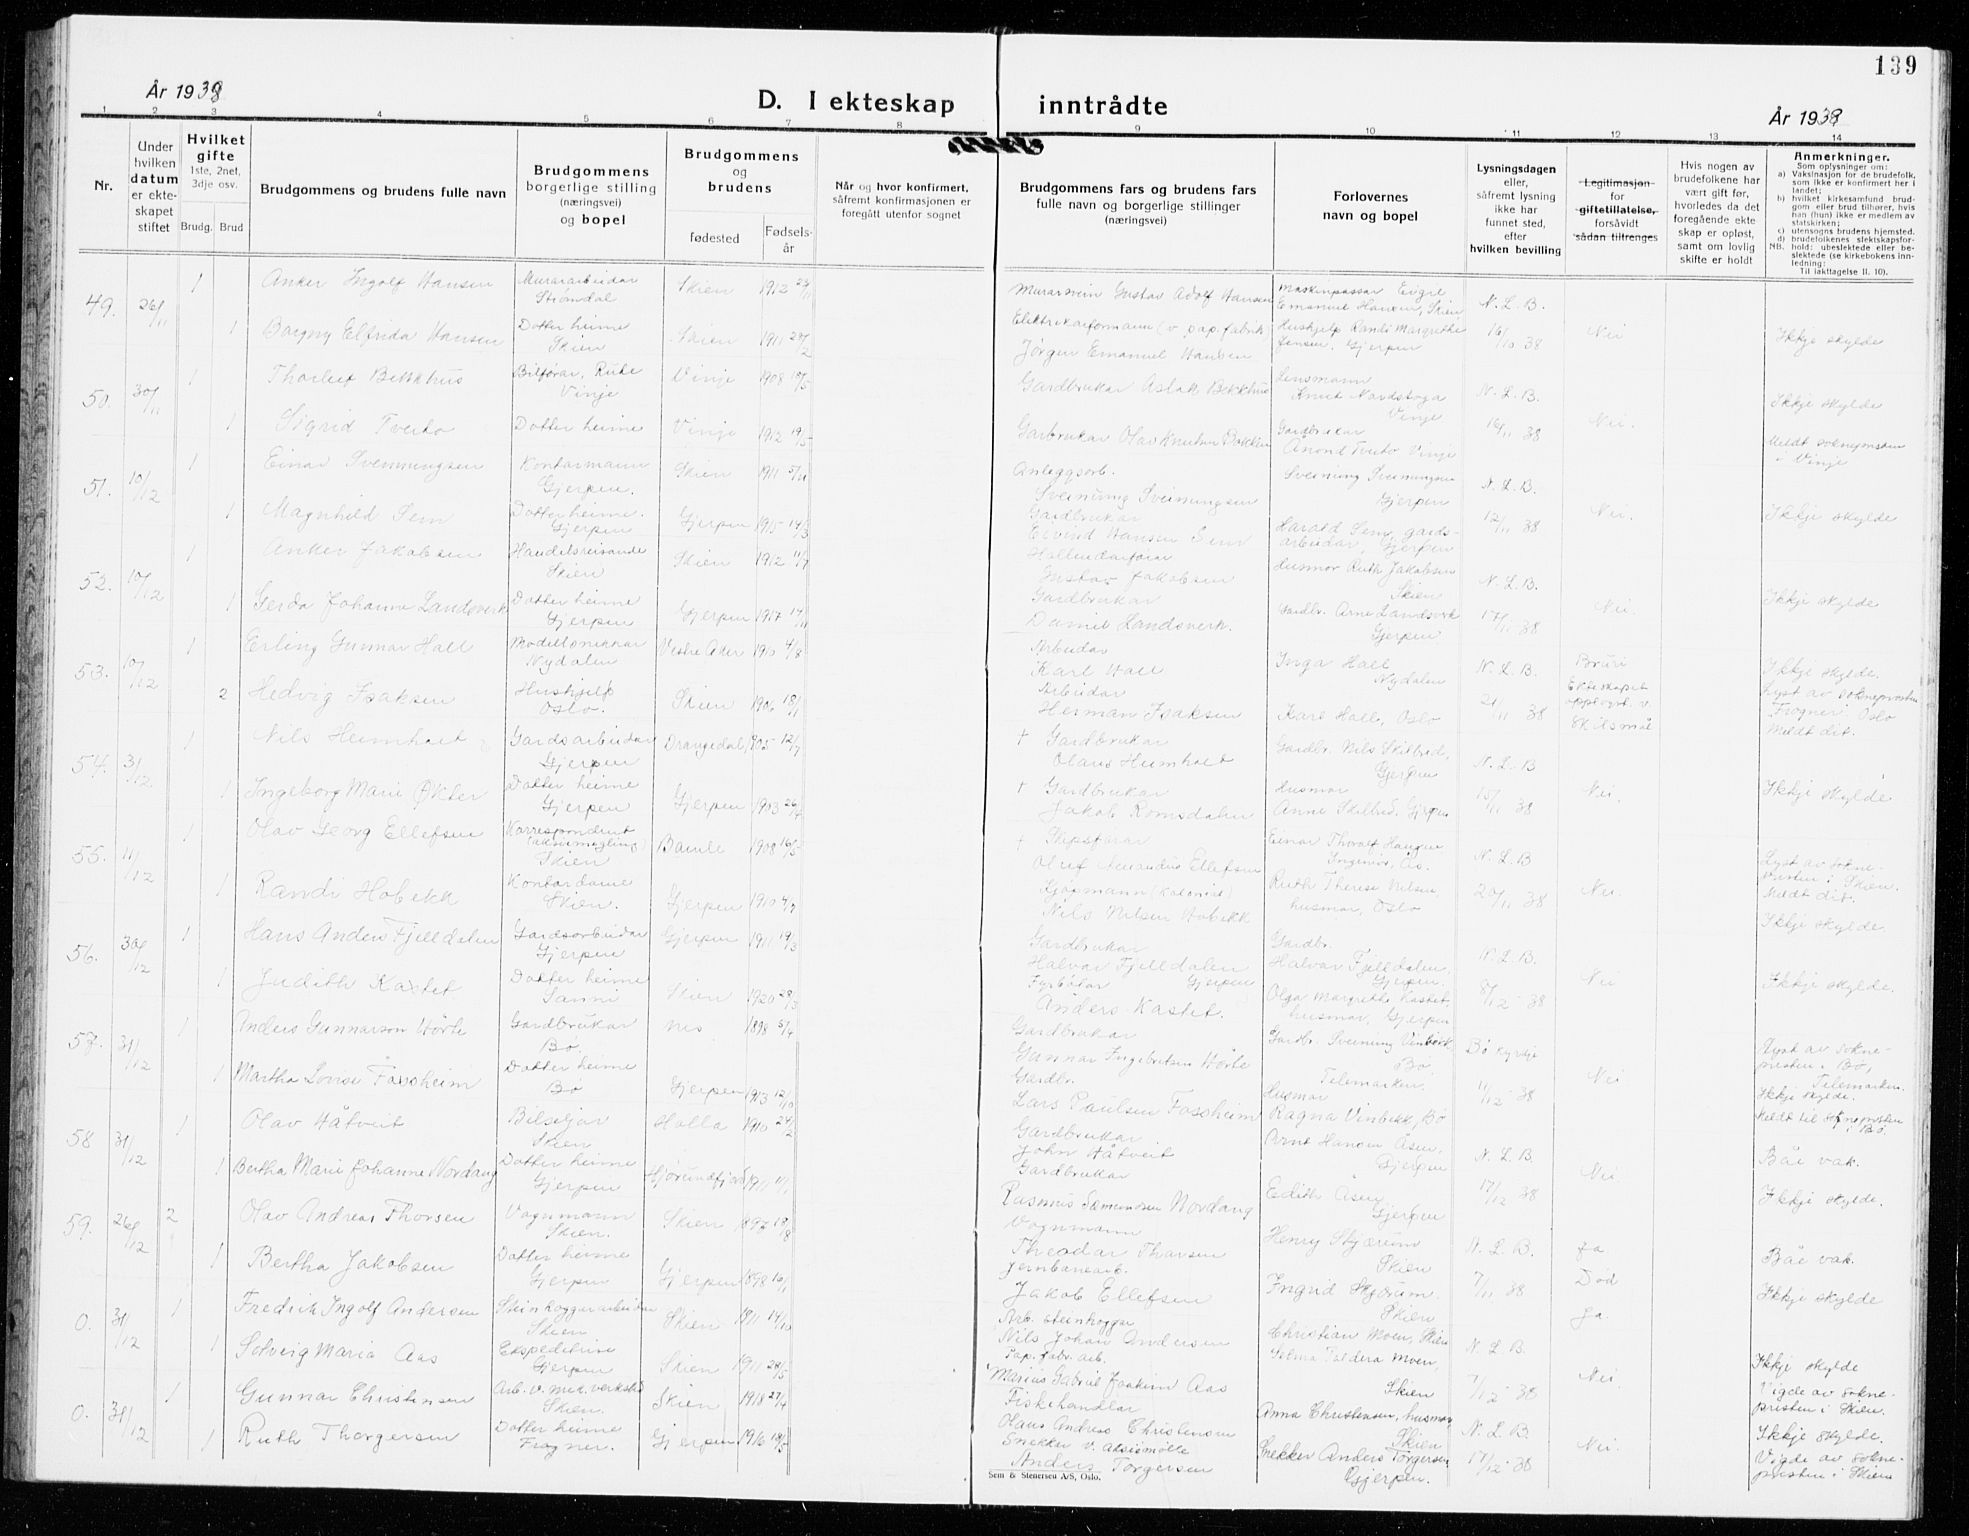 139
År 1938
D. I ekteskap inntrådte
År 1938
1 2 3 4 5 6 7 8 9 10 11 12 13 14
Nr.
Under hvilken datum er ekteskapet stiftet
Hvilket gifte 1ste, 2net, 3dje osv.
Brudg. Brud
Brudgommens og brudens fulle navn
Brudgommens borgerlige stilling (næringsvei) og bopel
Brudgommens og brudens
fødested
Fødselsår
Når og hvor konfirmert, såfremt konfirmasjonen er foregått utenfor sognet
Brudgommens fars og brudens fars fulle navn og borgerlige stillinger (næringsvei)
Forlovernes navn og bopel
Lysningsdagen eller, såfremt lysning ikke har funnet sted, efter hvilken bevilling
Legitimasjon for giftetillatelse, forsåvidt sådan tiltrenges
Hvis nogen av brudefolkene har vært gift før, hvorledes da det foregående ekteskap er opløst, samt om lovlig skifte er holdt
Anmerkninger.
Som oplysninger om:
a) Vaksinasjon for de brudefolk, som ikke er konfirmert her i landet;
b) hvilket kirkesamfund brudgom eller brud tilhører, hvis han (hun) ikke er medlem av statskirken;
c) utensogns brudens hjemsted.
d) brudefolkenes slektskapsforhold: ubeslektede eller beslektede (se kirkebokens innledning:
NB. Til iakttagelse II. 10).
49. 26/11 1 Anker Ingolf Hansen Murararbeidar Strømdal Skien 1912 Murarsvein Gustav Adolf Hansen Maskinpassar Emanuel Hansen, Skien N. L. B.
1 Borgny Elfrida Hansen Dotter heime Skien Skien 1911 28/2 Elektrikarformann (v. pap.fabrik) Jørgen Emanuel Hansen Hushjelp Randi Margrethe Jensen, Gjerpen 16/10 38 Nei Ikkje skylde
50. 30/11 1 Bekkhus Bilførar, Vinje Vinje 1908 Gardbrukar Aslak Bekkhus Lensmann Knut Nordstoga Vinje N. L. B. Ikkje skylde
1 Sigrid Tveito Dotter heime Vinje 1912 19/5 Garbrukar Olav Knutsen Bakken Gardbrukar Ånond Tveito Vinje 16/11 38 Nei. Meldt soknepresten i Vinje
51. 10/12 1 Einar Sveinungsen Kontormann Gjerpen. Skien 1911 Anleggsarb. Sveinung Sveinungsen Sveinung Sveinungsen Gjerpen N. L. B.
1 Magnhild Sem Dotter heime. Gjerpen Gjerpen 1915 14/3 Gardbrukar Eivind Hansen Sem Harald Sem, gardsarbeidar, Gjerpen 12/11 38 Nei. Ikkje skylde
52. 10/12 1 Anker Jakobsen Handelsreisande Skien Skien 1912 11/7 Gustav Jakobsen Husmor Ruth Jakobsen Skien N. L. B.
1 Gerda Johanne Landsverk Dotter heime Gjerpen Gjerpen 1917 14/11 Gardbrukar Daniel Landsverk. Gardbr. Arne Landsverk Gjerpen 17/11 38 Nei. Ikkje skylde
53. 10/12 1 Erling Gunnar Hall Modellsnikkar Nydalen Vestre Aker 1910 4/8 Arbeidar Karl Hall Inga Hall Nydalen N. L. B. Bruri Ikkje skylde.
2 Hedvig Isaksen Hushjelp Oslo. Skien 1906 18/1 Arbeidar Herman Isaksen Karl Hall, Oslo 21/11 38 Ekteskapet oppløyst v. skilsmål Lyst av soknepresten Frogner i Oslo Meldt dit.
54. 3/12 1 Nils Heimholt Gardsarbeidar Gjerpen Drangedal 1905 12/7 † Gardbrukar Olaus Heimholt Gardbr. Nils Skilbred, Gjerpen N. L. B
1 Ingeborg Marie Økter Dotter heime Gjerpen Gjerpen 1903 26/4 † Gardbrukar Jakob Romsdalen Husmor Anne Skilbred, Gjerpen 15/11 38 Nei. Ikkje skylde
55. 11/12 1 Olav Georg Ellefsen Korrespondent Skien Bamle 1908 16/5 † Skipsførar Ellefsen Einar Thoralf Haugen Ingeniør, N. L. B Lyst av soknepresten i Skien. Meldt dit.
1 Randi Hobekk Kontordame Skien. Gjerpen 1910 4/7 Kjøpmann (kolonial) Nils Nilsen Hobekk Ruth Therese Nilsen husmor, Oslo 20/11 38 Nei. Ikkje skylde.
56. 30/12 1 Hans Anders Fjelldalen Gardsarbeidar Gjerpen Gjerpen 1911 19/3 Gardbrukar Halvar Fjelldalen Gjerpen Gardbr. Halvar Fjelldalen, Gjerpen. N. L. B.
1 Judith Kastet Dotter heime Skien 1920 28/3 Fyrbøtar Anders Kastet. Olga Margrethe Kastet, husmor, Gjerpen 8/12 38 Nei Ikkje skylde.
57. 31/12 1 Anders Gunnarson Hørte Gardbrukar Bø 1898 5/4 Gardbrukar Gunnar Ingebretsen Hørte Gardbr. Sveinung Vinbekk Bø Telemarken. Bø kyrkje Lyst av soknepresten i Bø, Telemarken.
1 Martha Lovise Fossheim Dotter heime Bø Gjerpen 1913 12/10 Gardbr. Lars Paulsen Fossheim Husmor Ragna Vinbekk, Bø 11/12 38 Nei Ikkje skylde. Meldt til soknepresten i Bø.
58 31/12 1 Olav Håtveit Bileigar Skien Holla 1910 24/2 Gardbrukar John Håtveit Arnt Hansen Åsen, Gjerpen N. L. B. Båe vak.
1 Bertha Marie Johanne Nordang Dotter heime Gjerpen Hjørundfjord 1911 11/1 Gardbrukar Rasmus Samundsen Nordang Edith Åsen Gjerpen 17/12 38 Nei Ikkje skylde.
59. 26/12 2 Olav Andreas Thorsen Vognmann Skien. Skien 1892 18/8 Vognmann Theodor Thorsen Henry Skjærum Skien N. L. B. Ja Båe vak.
1 Bertha Jakobsen Dotter heime Gjerpen Gjerpen 1898 16/1 Jernbanearb. Jakob Ellefsen Ingrid Skjærum. Skien 7/11 38 Død Ikkje skylde
0. 31/12 1 Fredrik Ingolf Andersen Steinhoggararbeidar Skien Skien 1911 14/10 Arb. steinhoggar Nils Johan Andersen Christian Moen, Skien N. L. B. Ja
1 Solveig Maria Aas Ekspeditrise Gjerpen Skien 1911 28/5 Pap.fabr.arb. Marius Gabriel Joakim Aas Selma Moen, Skien 7/12 38 Nei. Ikkje skylde Vigde av soknepresten i Skien.
0. 31/12 1 Gunnar Christensen Arb. v. mek. verksted Skien. Skien 1918 27/4 Fiskehandlar Olaus Andreas Christensen Anna Christensen, husmor, Skien N. L. B. Ikkje skylde.
1 Ruth Thorgersen Dotter heime Frogner. Gjerpen 1916 18/5 Snekker v. Anders Torgersen Snekker Anders Torgersen, Gjerpen. 17/12 38 Nei. Vigde av soknepresten i Skien
Sem & Stenersen A/S, Oslo.